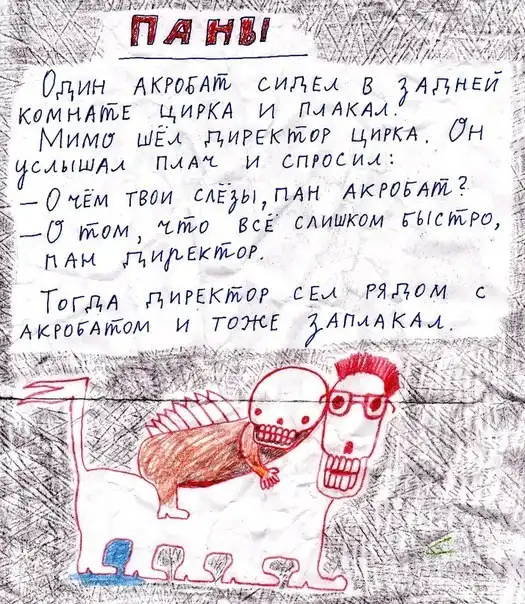 ПАНЫ
Один акробат сидел в задней
комнате цирка и плакал.
Мимо шёл директор цирка. Он
услышал плач и спросил:
– О чём твои слёзы, пан акробат?
– О том, что всё слишком быстро,
пан директор.
Тогда директор сел рядом с
акробатом и тоже заплакал.